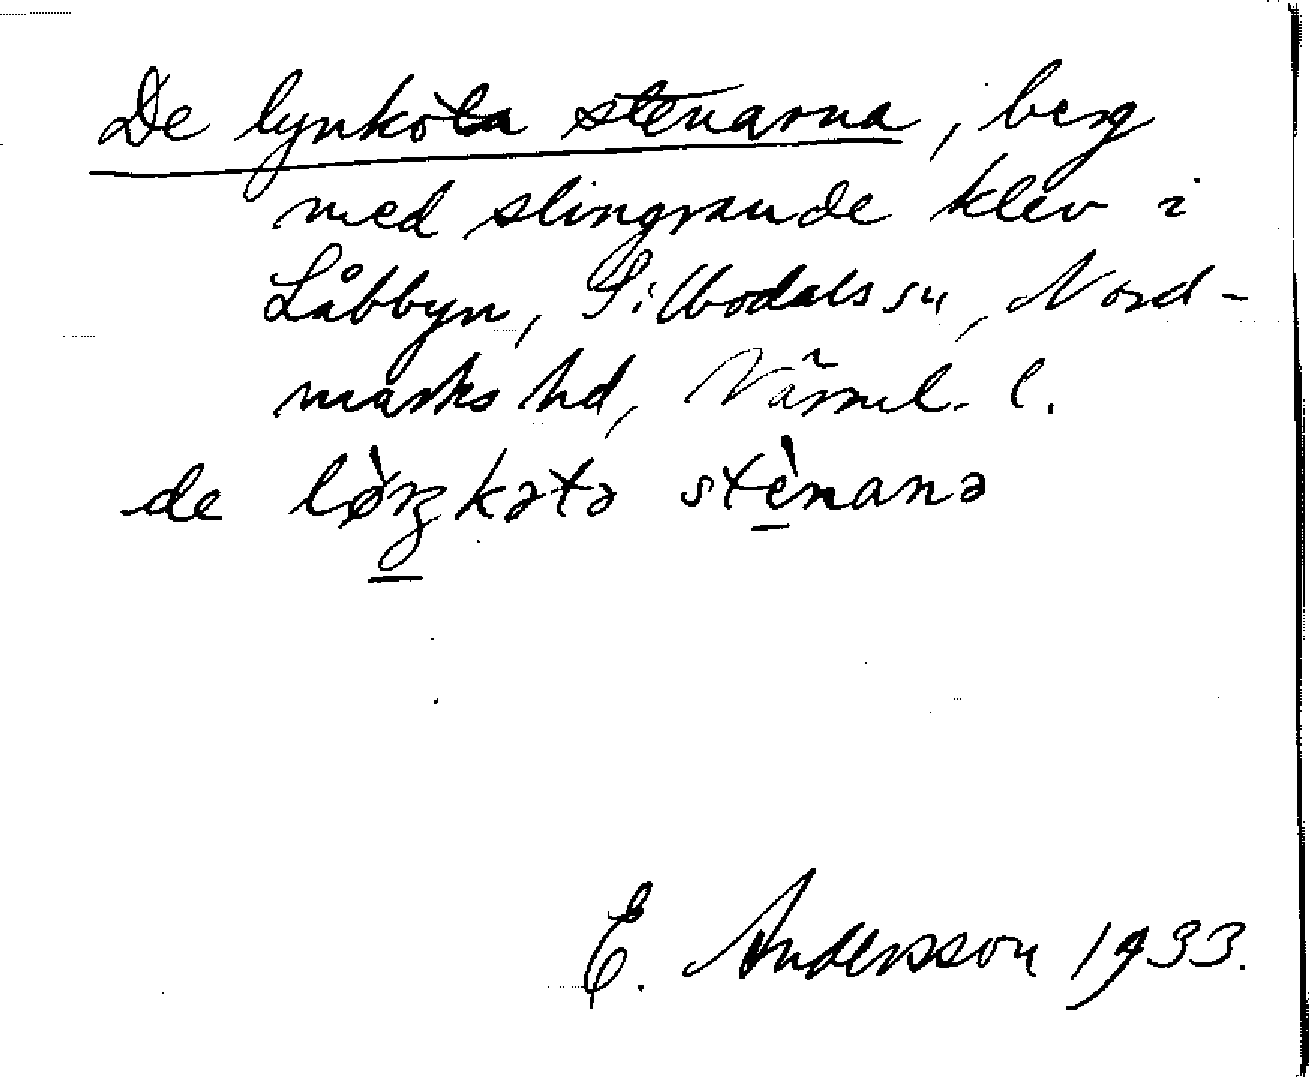 De lynköta stenarna, berg
med slingrande klev i
Låbbyn, Silbodals sn, Nord-
marks hd, Värml. l.
de lø̀ŋkətə stènanə
E. Andersson 1933.